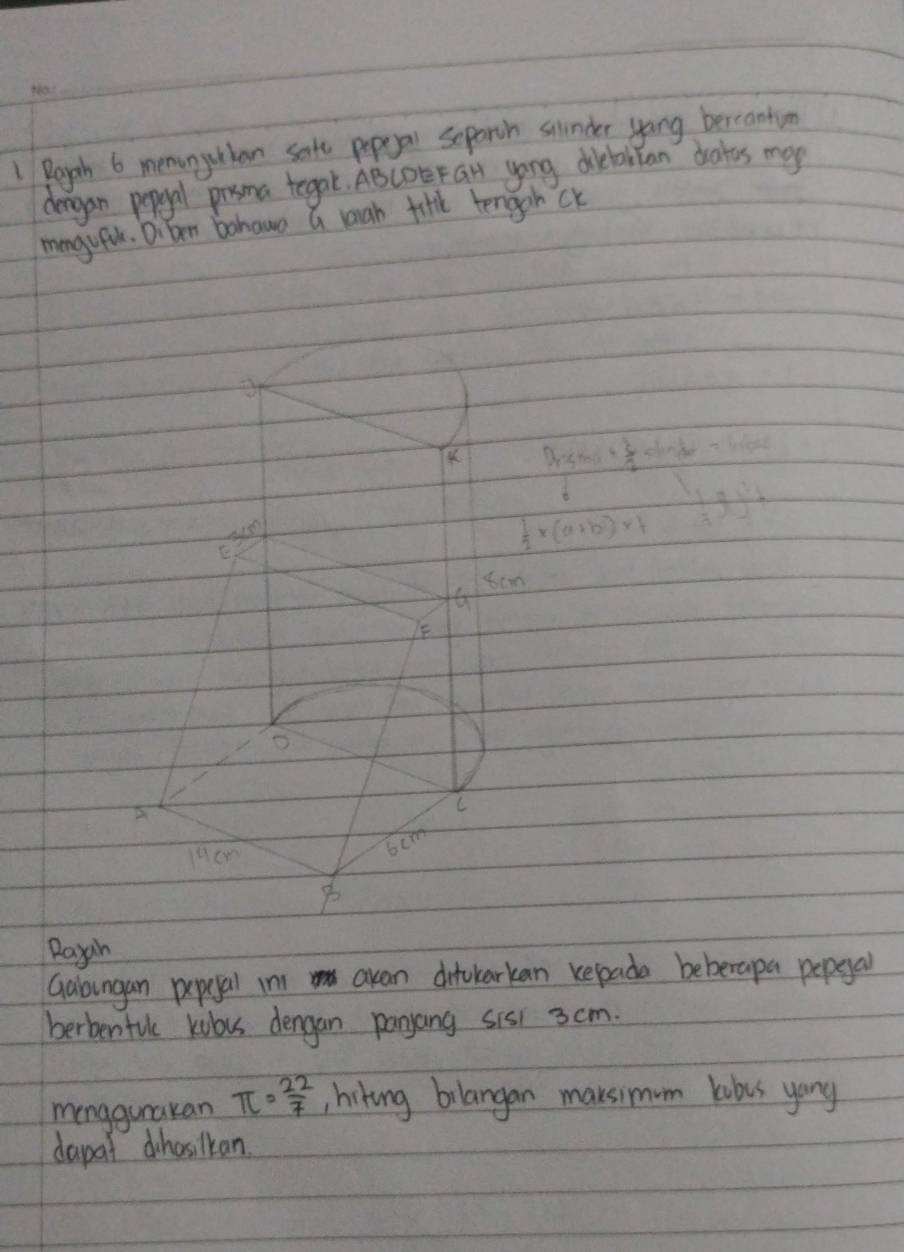 No:
1 Rajah 6 menunjukkan satu pepejal separuh silinder yang bercantum
dengan pepejal prisma tegak. ABCDEFGH yang diletakkan diatas meja
mengufuk. Diberi bahawa G ialah titik tengah CK
J
K
Prisma + 1/2 silinder
1/2 × (a+b) × t
3cm
E
8cm
G
F
D
A
C
14cm
6cm
B
Rajah
Gabungan pepejal ini akan ditukarkan kepada beberapa pepejal
berbentuk kubus dengan panjang sisi 3cm.
menggunakan π = 22/7, hitung bilangan maksimum kubus yang
dapat dihasilkan.